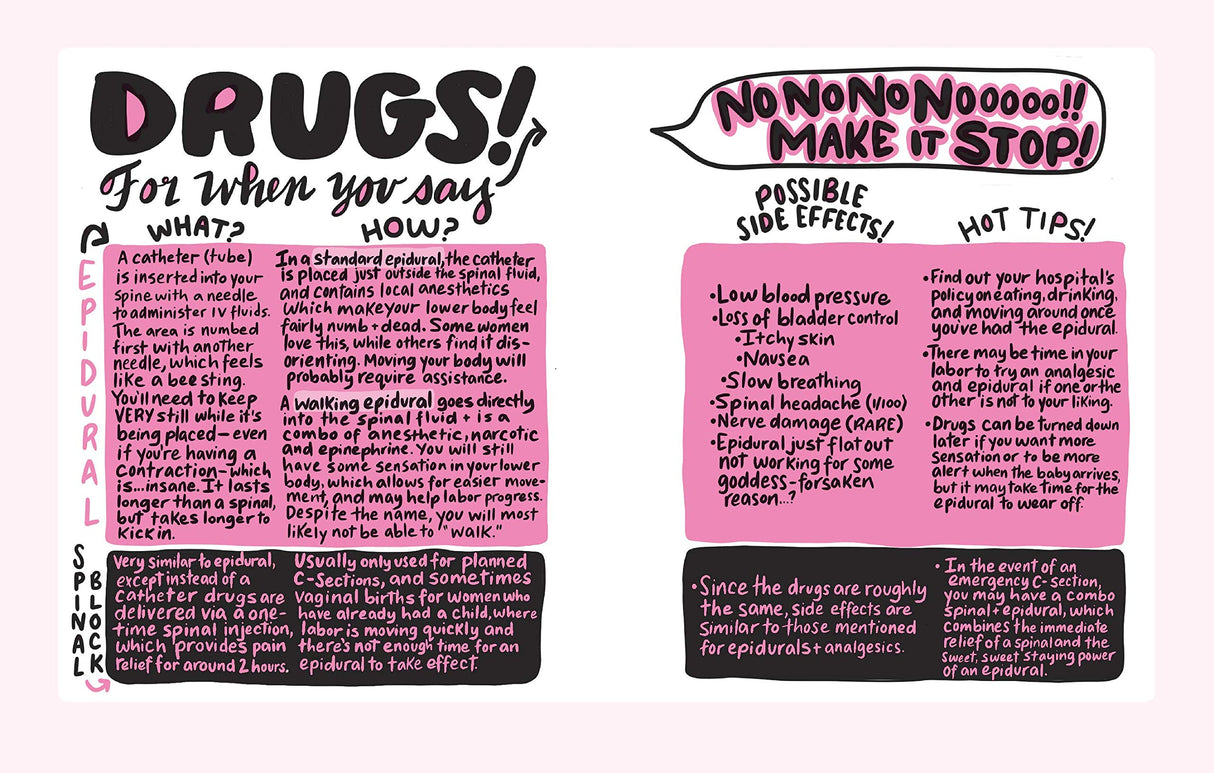 DRUGS!
For when you say
NO NO NO NOOOOO!!
MAKE IT STOP!
WHAT?
HOW?
POSSIBLE
SIDE EFFECTS!
HOT TIPS!
EPIDURAL
A catheter (tube)
is inserted into your
spine with a needle
to administer IV fluids.
The area is numbed
first with another
needle, which feels
like a bee sting.
You'll need to keep
VERY still while it's
being placed—even
if you're having a
contraction—which
is...insane. It lasts
longer than a spinal,
but takes longer to
kick in.
In a standard epidural, the catheter
is placed just outside the spinal fluid,
and contains local anesthetics
which make your lower body feel
fairly numb + dead. Some women
love this, while others find it dis-
orienting. Moving your body will
probably require assistance.
A walking epidural goes directly
into the spinal fluid + is a
combo of anesthetic, narcotic
and epinephrine. You will still
have some sensation in your lower
body, which allows for easier move-
ment, and may help labor progress.
Despite the name, you will most
likely not be able to "walk."
•Low blood pressure
•Loss of bladder control
•Itchy skin
•Nausea
•Slow breathing
•Spinal headache (1/100)
•Nerve damage (RARE)
•Epidural just flat out
not working for some
goddess-forsaken
reason...?
•Find out your hospital's
policy on eating, drinking,
and moving around once
you've had the epidural.
•There may be time in your
labor to try an analgesic
and epidural if one or the
other is not to your liking.
•Drugs can be turned down
later if you want more
sensation or to be more
alert when the baby arrives,
but it may take time for the
epidural to wear off.
SPINAL
BLOCK
Very similar to epidural,
except instead of a
catheter drugs are
delivered via a one-
time spinal injection,
which provides pain
relief for around 2 hours.
Usually only used for planned
C-Sections, and sometimes
vaginal births for women who
have already had a child, where
labor is moving quickly and
there's not enough time for an
epidural to take effect.
•Since the drugs are roughly
the same, side effects are
similar to those mentioned
for epidurals + analgesics.
•In the event of an
emergency C-section,
you may have a combo
spinal + epidural, which
combines the immediate
relief of a spinal and the
sweet, sweet staying power
of an epidural.